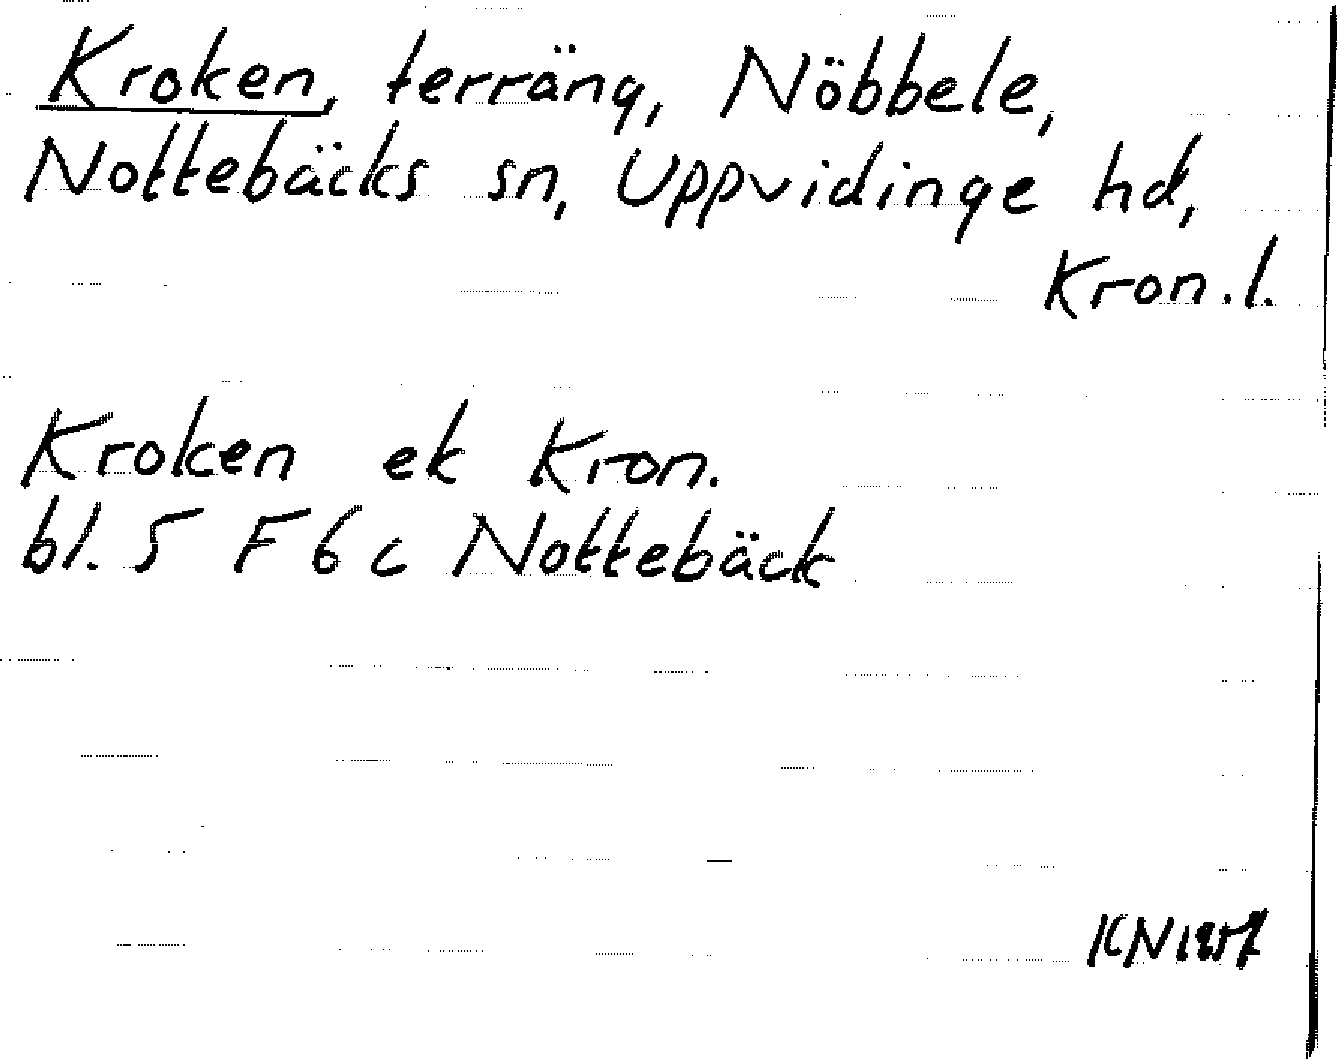 Kroken, terräng, Nöbbele,
Nottebäcks sn, Uppvidinge hd,
Kron.l.
Kroken ek Kron.
bl. 5 F 6 c Nottebäck